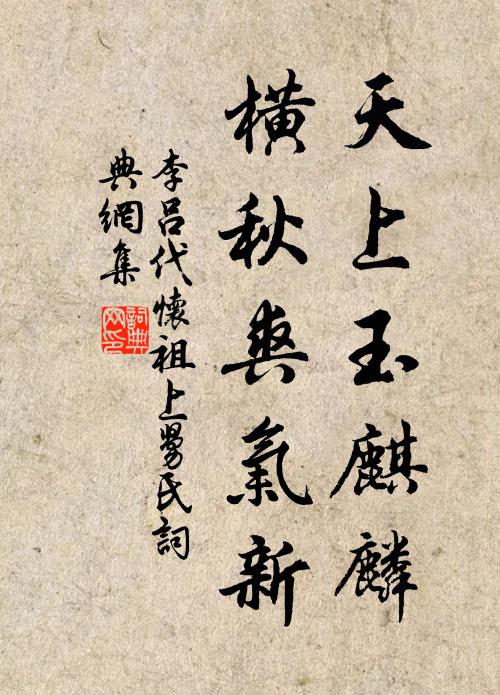 天上玉麒麟
橫秋爽氣新
李呂代懷祖上勞氏詞
典網集
詞典
网印